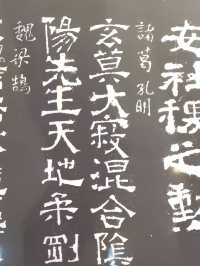 安社稷之勳
諸葛孔明
玄莫大寂混合陰
陽先主天地柔剛
魏梁鵠